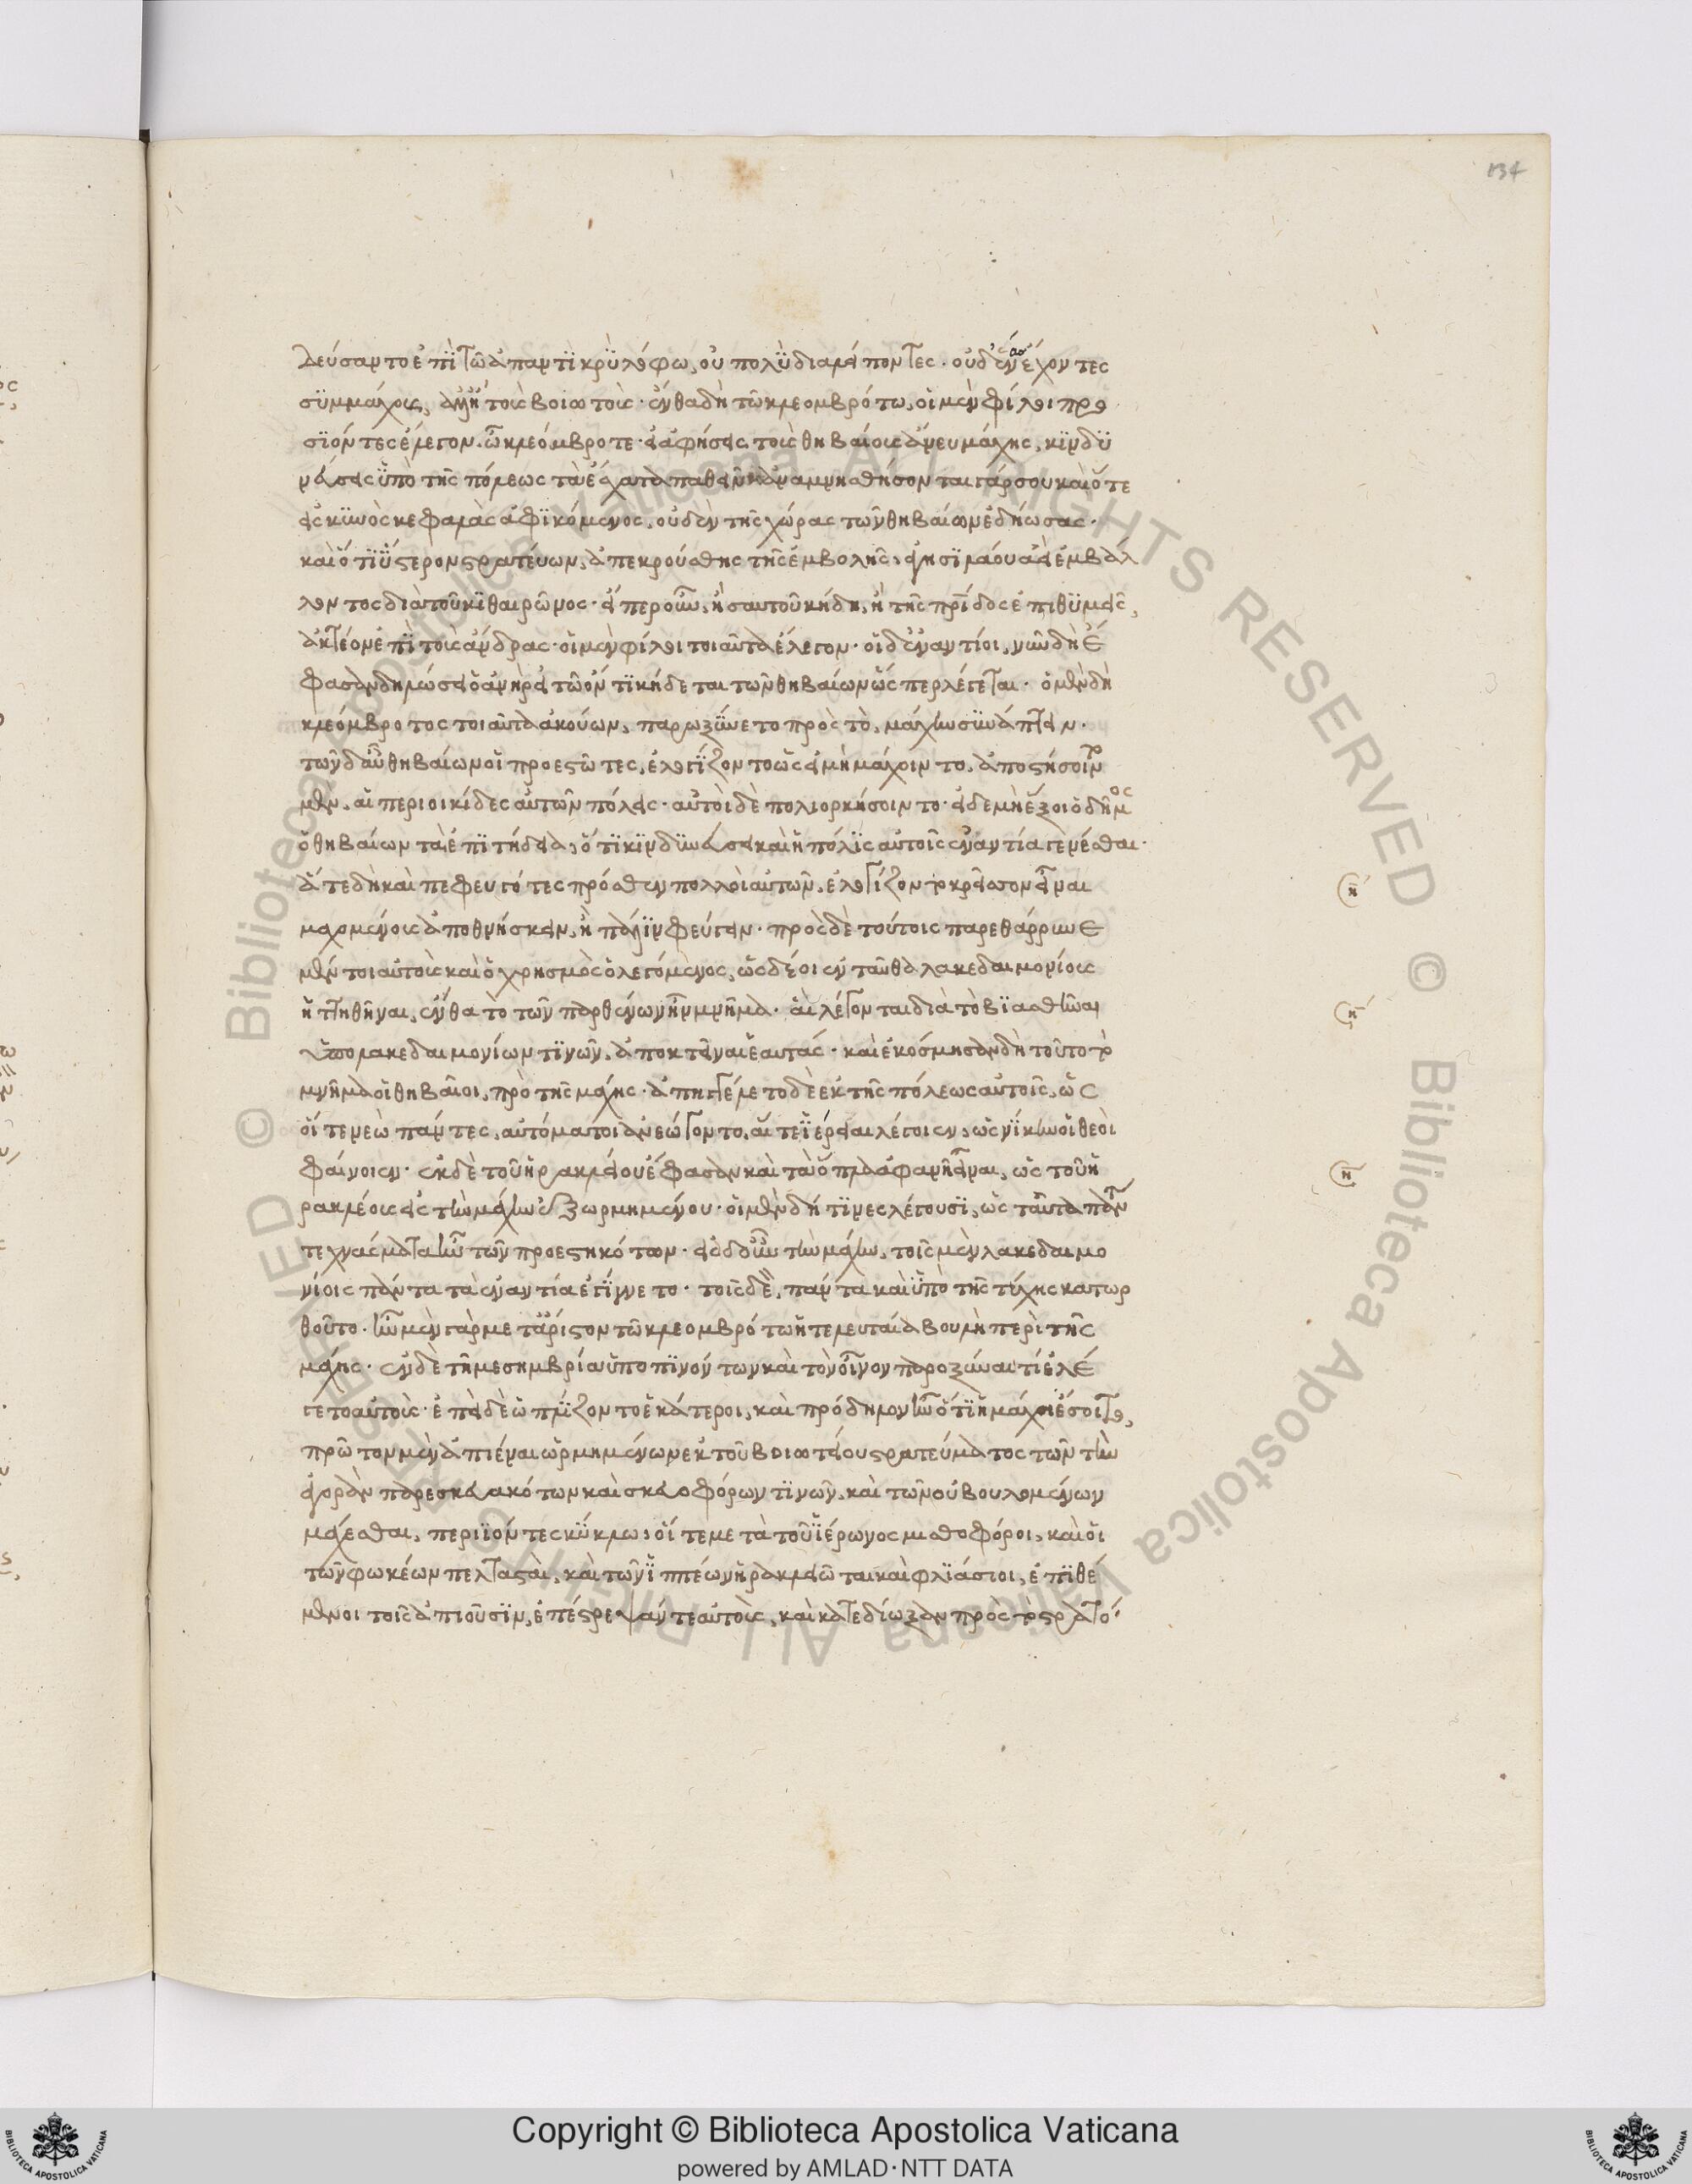 134
δεύσαντο ἐπὶ τῶ ἀπαντικρὺ λόφω, οὐ πολὺ διαλείποντες. οὐδένας ἔχοντες
συμμάχους, ἀλλ' ἢ τοὺς βοιωτούς. ἔνθα δὴ τῶ κλεομβρότω, οἱ μὲν φίλοι προ
σϊόντες ἔλεγον. ὦ κλεόμβροτε. εἰ ἀφήσεις τοὺς θηβαίους ἄνευ μάχης, κϊνδϋ
νεύσεις ὑπὸ τῆς πόλεως τὰ ἔσχατα παθεῖν. ἀναμνησθήσονται γάρ σου καὶ ὅτε
εἰς κυνὸς κεφαλὰς ἀφϊκόμενος, οὐδὲν τῆς χώρας τῶν θηβαίων ἐδήωσας.
καὶ ὅτϊ ὕστερον στρατεύων, ἀπεκρούσθης τῆς ἐμβολῆς, ἀγησϊλάου ἀεὶ ἐμβάλ
λοντος διὰ τοῦ κϊθαιρῶνος. εἴπερ οὖν, ἢ σαυτοῦ κήδη, ἢ τῆς πρίδος ἐπιθϋμεῖς,
ἀκτέον ἐπὶ τοὺς ἄνδρας. οἱ μὲν φίλοι τοιαῦτα ἔλεγον. οἱ δ' ἐναντίοι, νῦν δὴ ἔ
φασαν δηλώσει ὁ ἀνὴρ εἰ τῶ ὄντϊ κήδεται τῶν θηβαίων ὥσπερ λέγεται. ὁ μὲν δὴ
κλεόμβροτος τοιαῦτα ἀκούων, παρωξύνετο πρὸς τὸ, μάχην συνάπτειν.
τῶν δ' αὖ θηβαίων οἱ προεστῶτες, ἐλογίζοντο ὡς εἰ μὴ μάχοιντο, ἀποστήσοιντο
μὲν, αἱ περιοικίδες αὐτῶν πόλεις. αὐτοὶ δὲ πολιορκήσοιντο. εἰ δὲ μὴ ἕξοι ὁ δῆμος
ὁ θηβαίων τὰ ἐπιτήδεια, ὅτϊ κϊνδϋνεύσει καὶ ἡ πόλϊς αὐτοῖς ἐναντία γενέσθαι.
ἅτε δὴ καὶ πεφευγότες πρόσθεν πολλοὶ αὐτῶν, ἐλογίζοντο κρεῖσσον εἶναι
μαχομένους ἀποθνήσκειν, ἢ πάλϊν φεύγειν. πρὸς δὲ τούτοις παρεθάρρυνε
μέν τοι αὐτοὺς καὶ ὁ χρησμὸς ὁ λεγόμενος, ὡς δέοι ἐνταῦθα λακεδαιμονίους
ἡττηθῆναι, ἔνθα τὸ τῶν παρθένων ἦν μνῆμα. αἳ λέγονται διὰ τὸ βϊασθῆναι
ὑπὸ λακεδαιμονίων τϊνῶν, ἀποκτεῖναι ἑαυτάς. καὶ ἐκόσμησαν δὴ τοῦτο τὸ
μνῆμα οἱ θηβαῖοι, πρὸ τῆς μάχης. ἀπηγγέλετο δὲ ἐκ τῆς πόλεως αὐτοῖς, ὡς
οἵ τε νεῲ πάντες, αὐτόματοι ἀνεώγοντο, αἵ τε ϊέρειαι λέγοιεν, ὡς νίκην οἱ θεοὶ
φαίνοιεν. ἐκ δὲ τοῦ ἡρακλείου ἔφασαν καὶ τὰ ὅπλα ἀφανῆ εἶναι, ὡς τοῦ ἡ
ρακλέους εἰς τὴν μάχην ἐξωρμημένου. οἱ μὲν δή τϊνες λέγουσϊ, ὡς ταῦτα πάντα
τεχνάσματα ἦν τῶν προεστηκότων. εἰς δ' οὖν τὴν μάχην, τοῖς μὲν λακεδαιμο
νίοις πάντα τὰ ἐναντία ἐγίγνετο. τοῖς δὲ, πάντα καὶ ὑπὸ τῆς τύχης κατωρ
θοῦτο. ἦν μὲν γὰρ μετ' ἄριστον τῶ κλεομβρότω ἡ τελευταία βουλὴ περὶ τῆς
μάχης. ἐν δὲ τῆ μεσημβρία ὑποπϊνόντων καὶ τὸν οἶνον παροξῦναι τί ἐλέ
γετο αὐτούς. ἐπεὶ δὲ ὡπλίζοντο ἑκάτεροι, καὶ πρόδηλον ἦν ὅτϊ ἡ μάχοι ἔσοιτο,
πρῶτον μὲν ἀπιέναι ὡρμημένων ἐκ τοῦ βοιωτείου στρατεύματος τῶν τὴν
ἀγορὰν παρεσκευακότων καὶ σκευοφόρων τϊνῶν, καὶ τῶν οὐ βουλομένων
μάχεσθαι, περιϊόντες κύκλω, οἵ τε μετὰ τοῦ ϊέρωνος μισθοφόροι, καὶ οἱ
τῶν φωκέων πελτασταὶ, καὶ τῶν ϊππέων ἡρακλεῶται καὶ φλϊάσιοι, ἐπϊθέ
μενοι τοῖς ἀπιοῦσϊν, ἐπέστρεψάν τε αὐτοὺς, καὶ κατεδίωξαν πρὸς τὸ στρατό
Copyright © Biblioteca Apostolica Vaticana
powered by AMLAD·NTT DATA